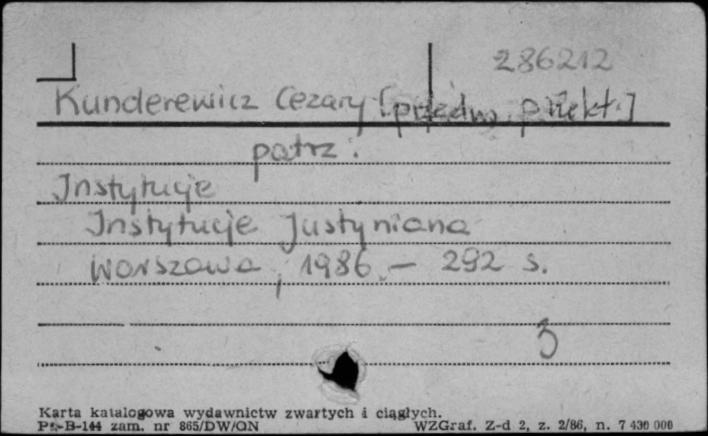 286212
Kunderewicz Cezary [przedm. przekł.]
patrz:
Instytucje
Instytucje Justyniana
Warszawa, 1986. – 292 s.
3
Karta katalogowa wydawnictw zwartych i ciągłych.
Pu-B-144 zam. nr 865/DW/ON WZGraf. Z-d 2, z. 2/86, n. 7 430 000